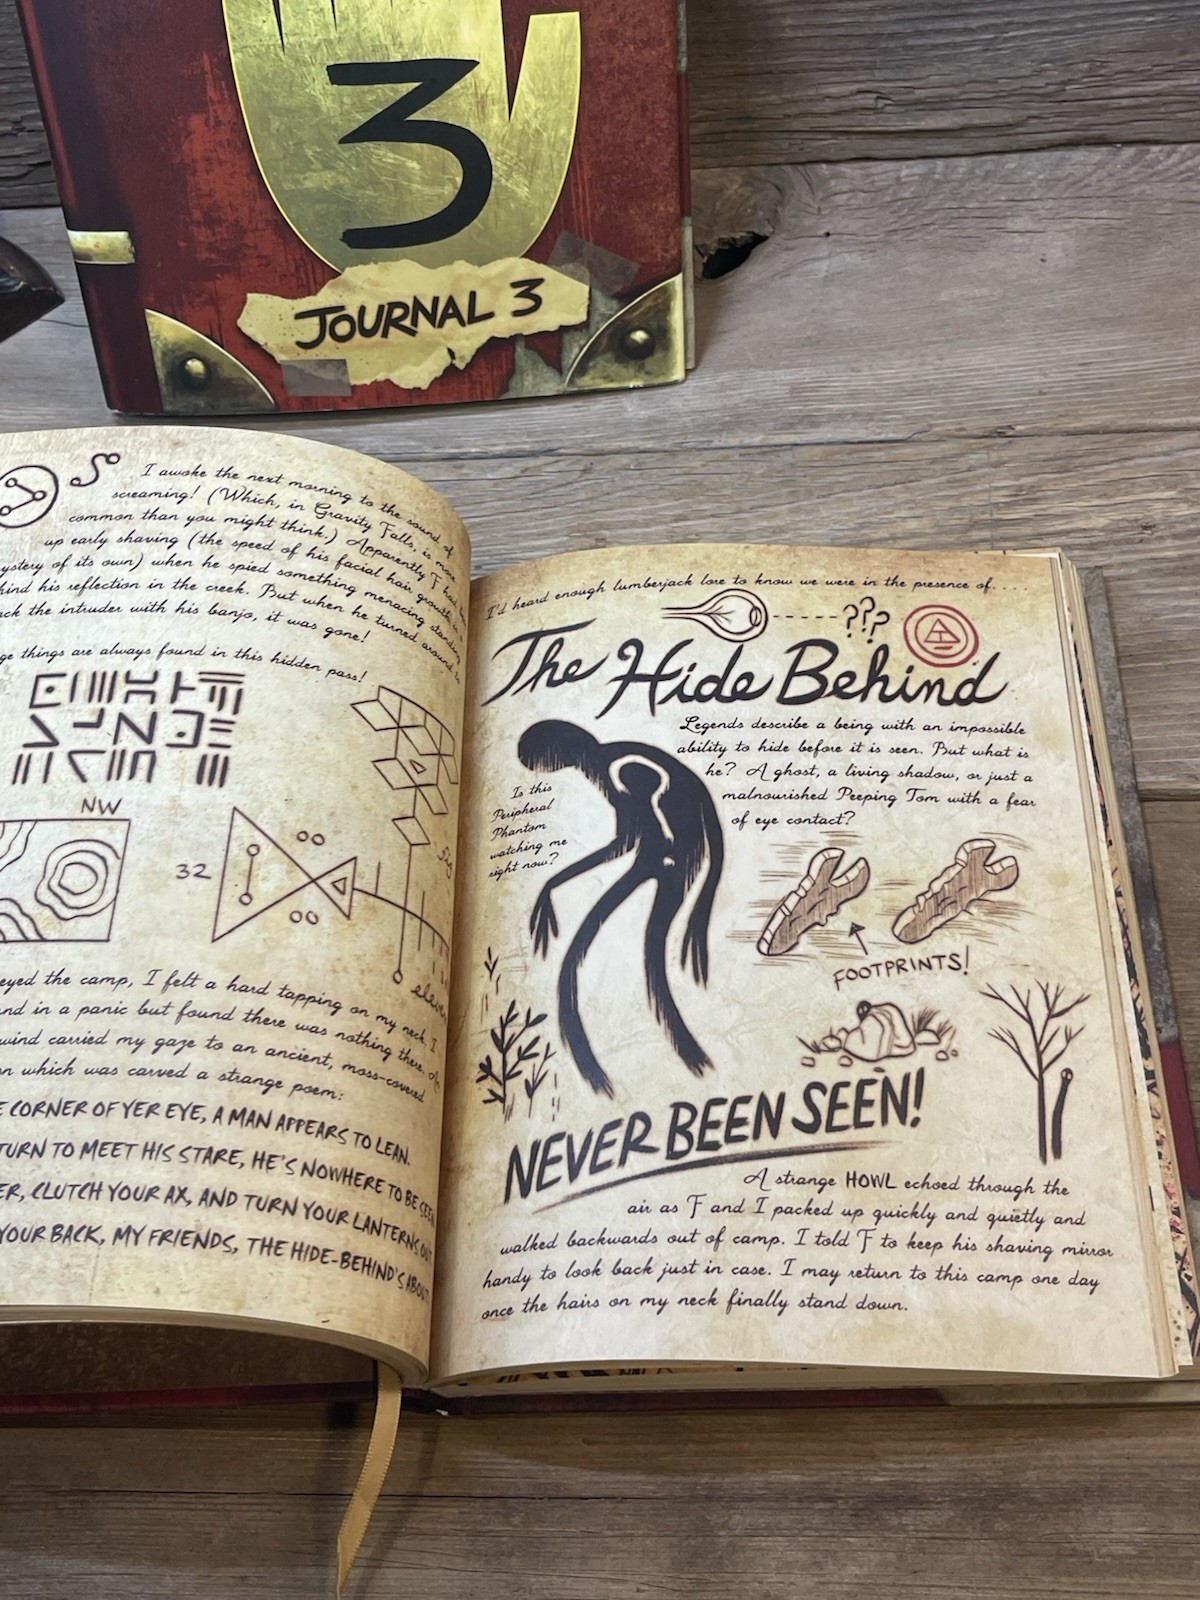 3
JOURNAL 3
I awoke the next morning to the sound of
screaming! (Which, in Gravity Falls, is more
common than you might think.) Apparently F had been
up early shaving (the speed of his facial hair growth is a
ystery of its own) when he spied something menacing standing
hind his reflection in the creek. But when he turned around to
ack the intruder with his banjo, it was gone!
ge things are always found in this hidden pass!
NW
32
eyed the camp, I felt a hard tapping on my neck. I
nd in a panic but found there was nothing there.
wind carried my gaze to an ancient, moss-covered
n which was carved a strange poem:
E CORNER OF YER EYE, A MAN APPEARS TO LEAN.
TURN TO MEET HIS STARE, HE'S NOWHERE TO BE SEEN
ER, CLUTCH YOUR AX, AND TURN YOUR LANTERNS OUT
YOUR BACK, MY FRIENDS, THE HIDE-BEHIND'S ABOUT
I'd heard enough lumberjack lore to know we were in the presence of....
???
The Hide Behind
Legends describe a being with an impossible
ability to hide before it is seen. But what is
he? A ghost, a living shadow, or just a
malnourished Peeping Tom with a fear
of eye contact?
Is this
Peripheral
Phantom
watching me
right now?
FOOTPRINTS!
NEVER BEEN SEEN!
A strange HOWL echoed through the
air as F and I packed up quickly and quietly and
walked backwards out of camp. I told F to keep his shaving mirror
handy to look back just in case. I may return to this camp one day
once the hairs on my neck finally stand down.